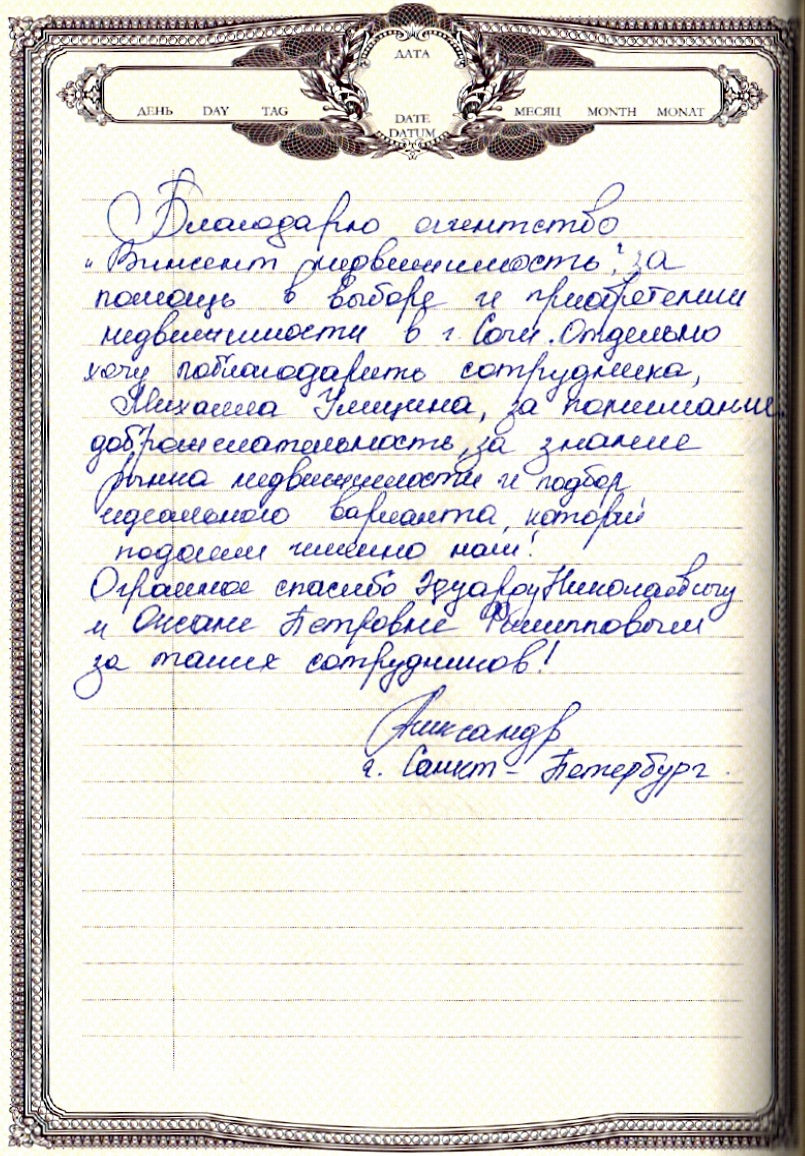 ДАТА
ДЕНЬ DAY TAG
МЕСЯЦ MONTH MONAT
DATE
DATUM
Благодарю агентство
"Винсент недвижимость", за
помощь в выборе и приобретении
недвижимости в г. Сочи. Отдельно
хочу поблагодарить сотрудника,
Михаила за понимание,
доброжелательность, за знание
рынка недвижимости и подбор
идеального варианта, который
подошел именно нам!
Огромное спасибо Эдуарду Николаевичу
и Оксане Петровне Филипповым
за таких сотрудников!
Александр
г. Санкт-Петербург.